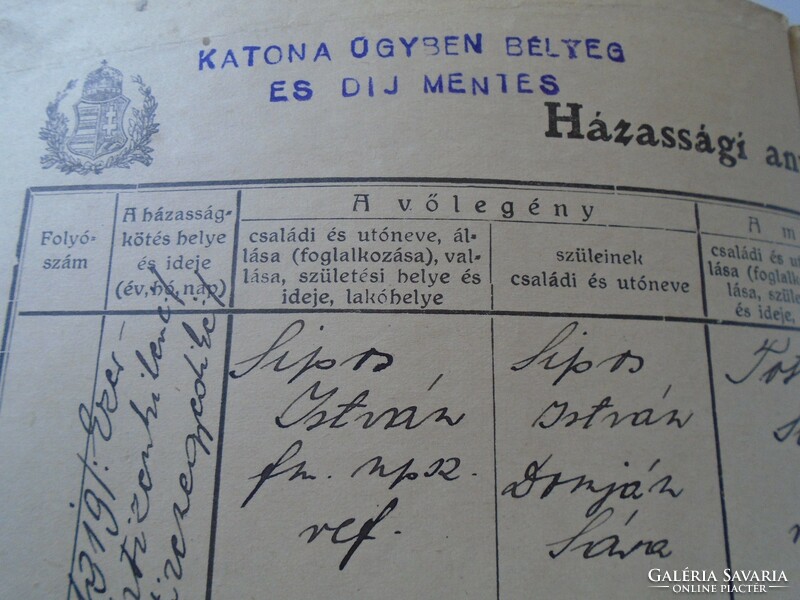 KATONA ÜGYBEN BÉLYEG
ES DIJ MENTES
Házassági an
Folyó-
szám
A házasság-
kötés helye
és ideje
(év, hó, nap)
A vőlegény
családi és utóneve, ál-
lása (foglalkozása), val-
lása, születési helye és
ideje, lakóhelye
szüleinek
családi és utóneve
A m
családi és u
lása (foglalk
lása, szüle
ideje,
Sipos
István
fm. npsz.
ref.
Sipos
István
Domján
Sára
GALÉRIA SAVARIA
ONLINE PIACTÉR